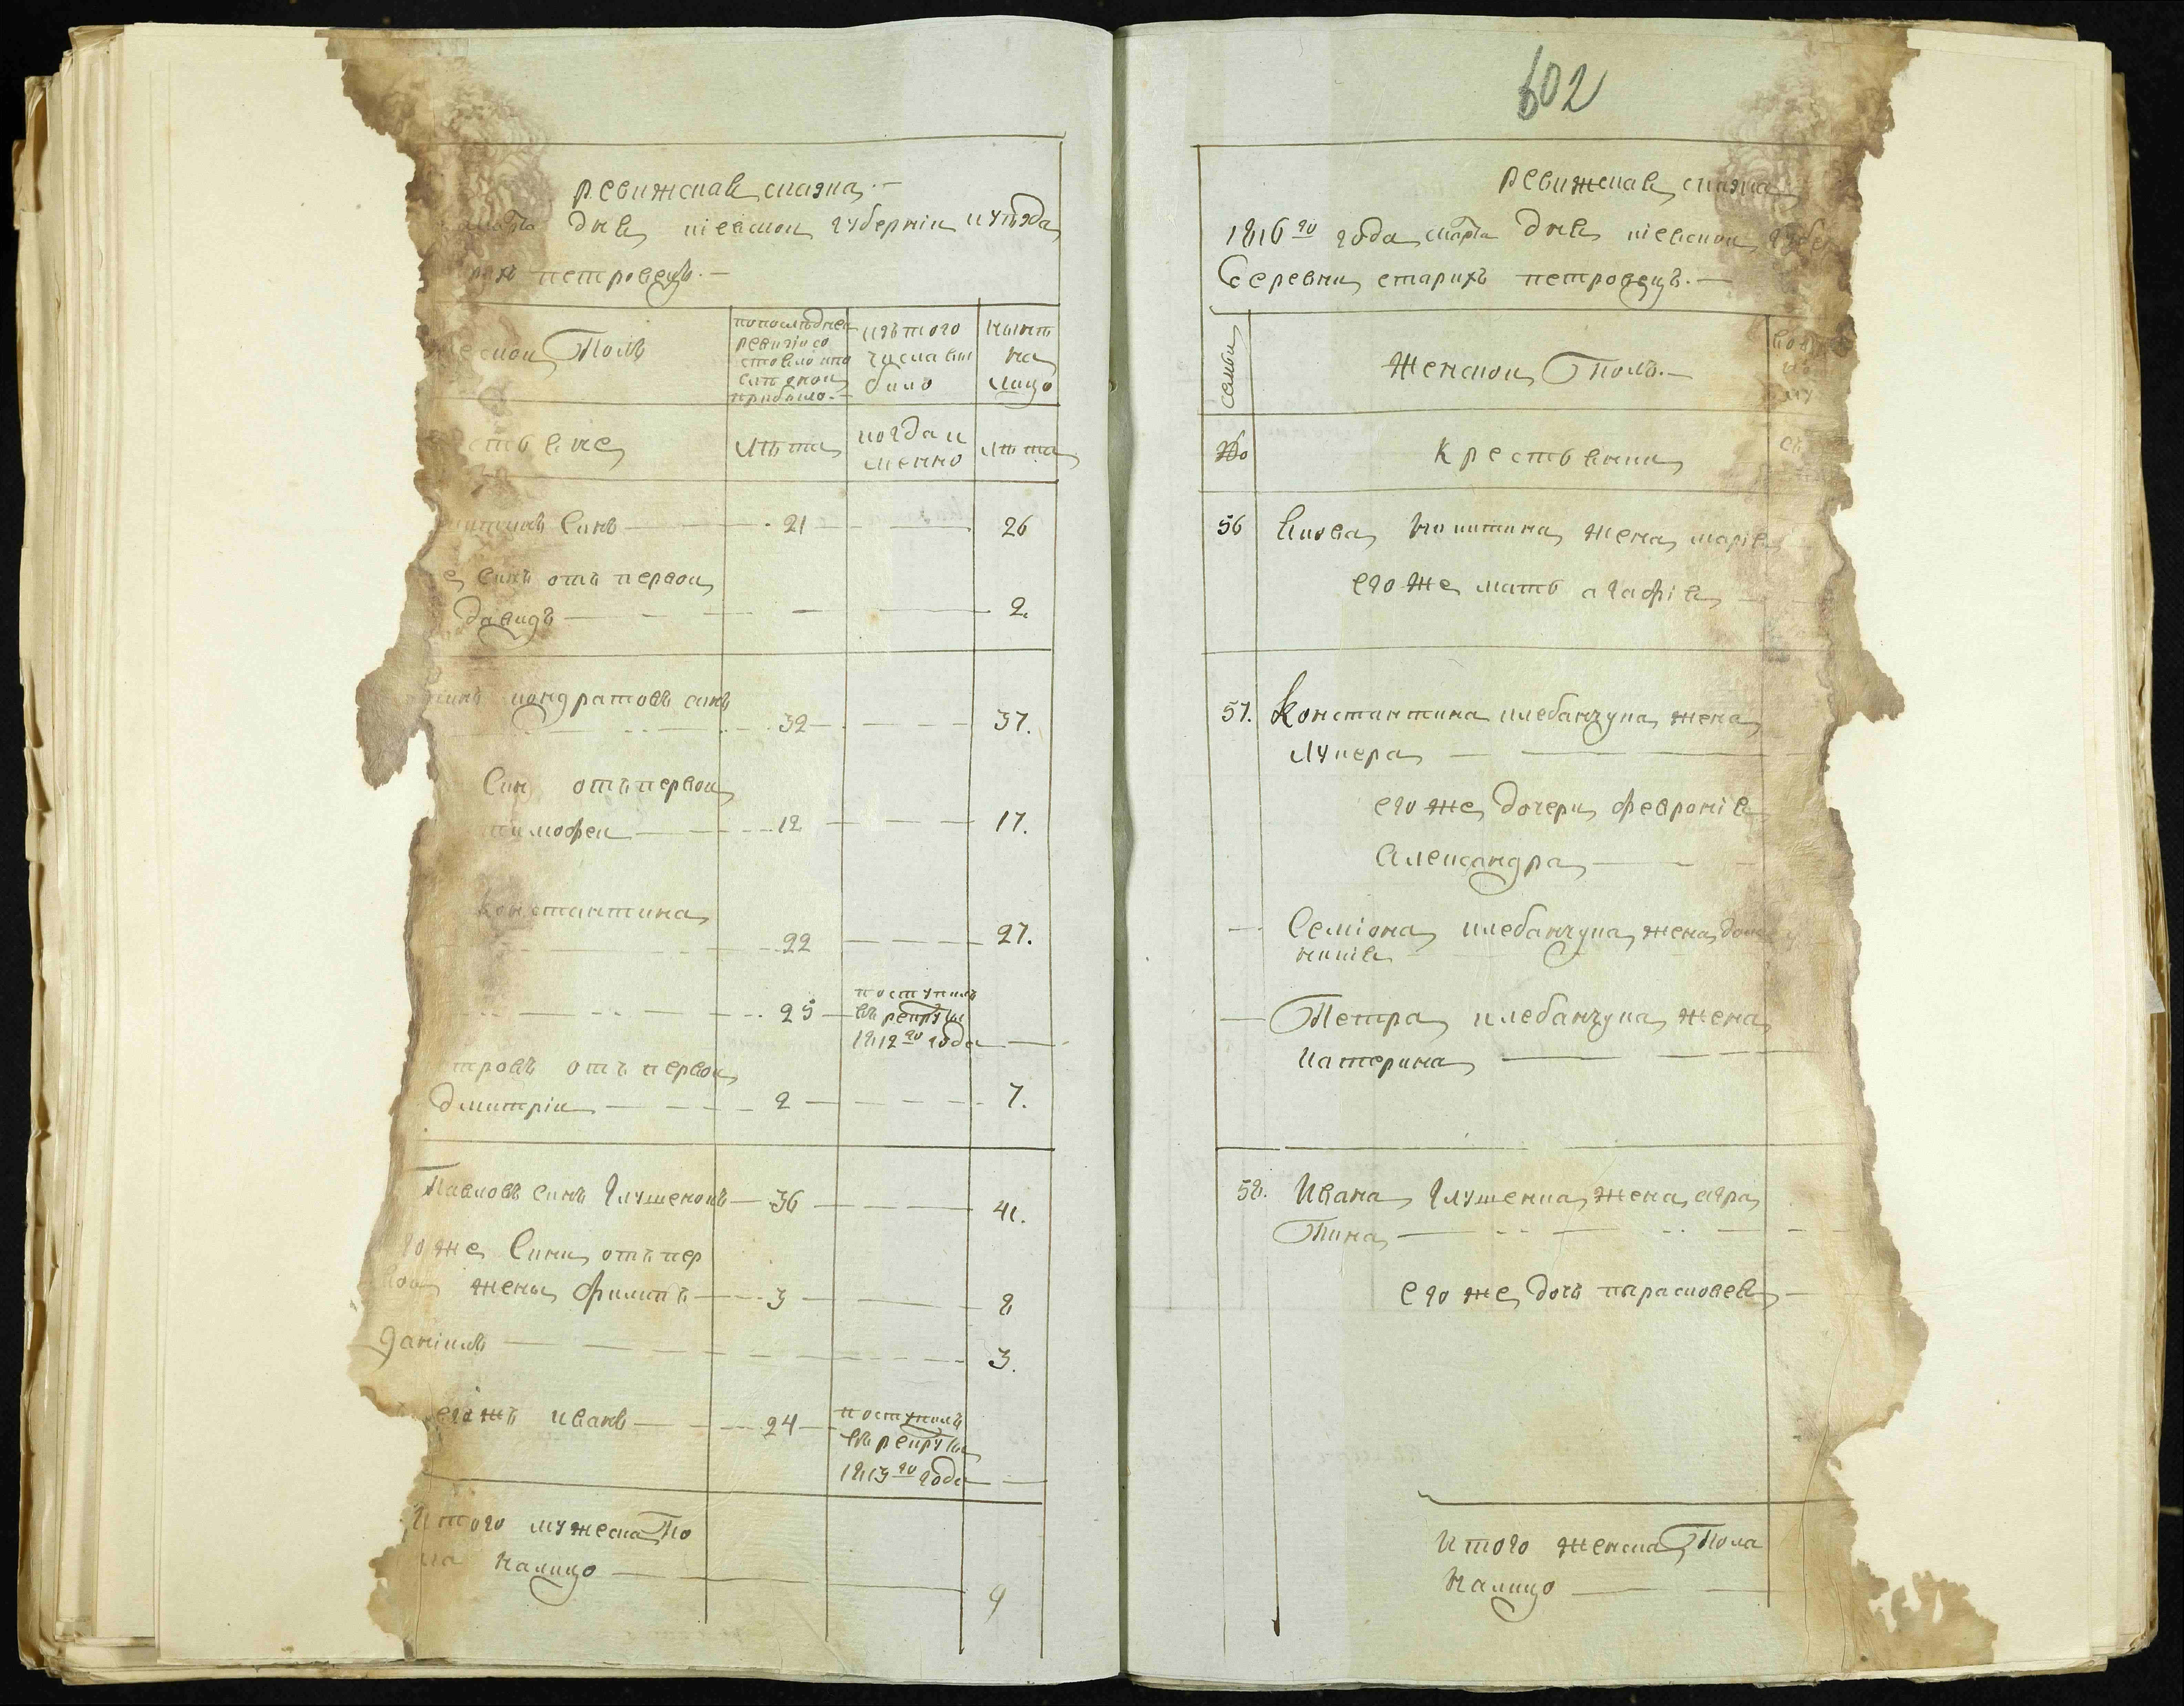 ревижская сказка.
дня киевской губерніи и уѣзда
петровецъ.
Полъ
попослѣдней
ревизіи со
стояло и по
слѣ оной
прибыло.
изъ того
числа вы
было
нынѣ
на
лицо
лѣта
когда и
менно
лѣта
Синъ 21 26
Синъ отъ первой
Давидъ 2.
кондратовъ синъ
32 37.
Син отъ первой
тимофей 12 17.
Константина
22 27.
25 поступилъ
въ рекруты
1812го года
отъ первой
Дмитрій 2 7.
Павловъ синъ Глушенокъ 36 41.
же Сини отъ пер
вой жены Филипъ 3 8
Даніилъ 3.
Иванъ 24 поступилъ
въ рекруты
1813го года
Итого мужеска По
ла Налицо 9
602
ревижская сказка
1816го года марта дня киевской
Деревни старихъ петровецъ.
семьи
Женской Полъ.
№о
Крестьянки
56 Якова Никитина жена марія
его же мать агафія
57. Константина клебанчука жена
Лукера
его же дочери февронія
Александра
Семіона клебанчука жена
Петра клебанчука жена
Катерина
58. Ивана Глушенка жена агра
Пина
его же дочъ парасковея
Итого женска Пола
Налицо